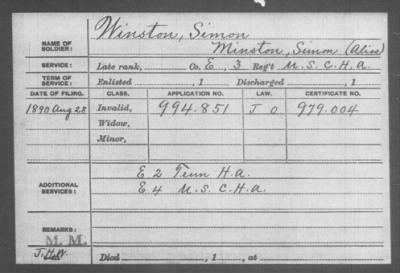 NAME OF SOLDIER: Winston, Simon
Minston, Simon (Alias)
SERVICE: Late rank, Co. E, 3 Reg't U. S. C. H. A.
TERM OF SERVICE: Enlisted , 1 Discharged , 1
DATE OF FILING. CLASS. APPLICATION NO. LAW. CERTIFICATE NO.
1890 Aug 28 Invalid, 994.851 J O 979.004
Widow,
Minor,
ADDITIONAL SERVICES: E 2 Tenn H. A.
E 4 U. S. C. H. A.
REMARKS:
M. M.
Died , 1 , at